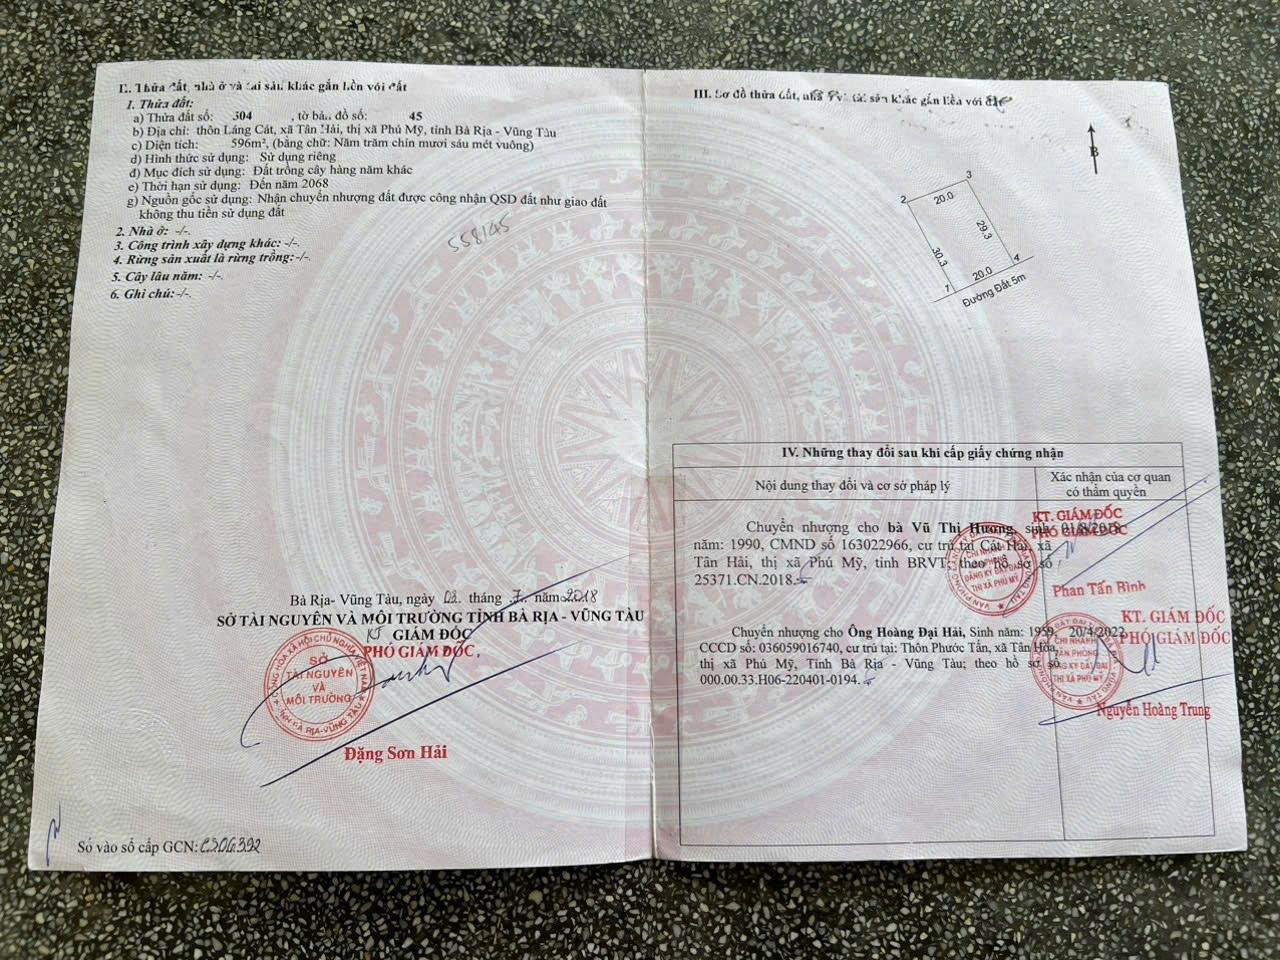 II. Thửa đất, nhà ở và tài sản khác gắn liền với đất
1. Thửa đất:
a) Thửa đất số: 304 , tờ bản đồ số: 45
b) Địa chỉ: thôn Láng Cát, xã Tân Hải, thị xã Phú Mỹ, tỉnh Bà Rịa - Vũng Tàu
c) Diện tích: 596m², (bằng chữ: Năm trăm chín mươi sáu mét vuông)
d) Hình thức sử dụng: Sử dụng riêng
đ) Mục đích sử dụng: Đất trồng cây hàng năm khác
e) Thời hạn sử dụng: Đến năm 2068
g) Nguồn gốc sử dụng: Nhận chuyển nhượng đất được công nhận QSD đất như giao đất
không thu tiền sử dụng đất
2. Nhà ở: -/-.
3. Công trình xây dựng khác: -/-.
4. Rừng sản xuất là rừng trồng:-/-.
5. Cây lâu năm: -/-.
6. Ghi chú:-/-.
558/45
Bà Rịa- Vũng Tàu, ngày 03 tháng 7 năm 2018
SỞ TÀI NGUYÊN VÀ MÔI TRƯỜNG TỈNH BÀ RỊA - VŨNG TÀU
KT GIÁM ĐỐC
PHÓ GIÁM ĐỐC
CỘNG HÒA XÃ HỘI CHỦ NGHĨA VIỆT NAM
SỞ
TÀI NGUYÊN
VÀ
MÔI TRƯỜNG
TỈNH BÀ RỊA-VŨNG TÀU
Đặng Sơn Hải
Số vào sổ cấp GCN:
III. Sơ đồ thửa đất, nhà ở và tài sản khác gắn liền với đất
B
2
3
20.0
29.3
30.3
4
20.0
1
Đường Đất 5m
IV. Những thay đổi sau khi cấp giấy chứng nhận
Nội dung thay đổi và cơ sở pháp lý
Xác nhận của cơ quan
có thẩm quyền
Chuyển nhượng cho bà Vũ Thị Hương, sinh
năm: 1990, CMND số 163022966, cư trú tại Cát Hải, xã
Tân Hải, thị xã Phú Mỹ, tỉnh BRVT; theo hồ sơ số
25371.CN.2018.
01/8/2018
KT. GIÁM ĐỐC
PHÓ GIÁM ĐỐC
CHI NHÁNH
VĂN PHÒNG
ĐĂNG KÝ ĐẤT ĐAI
THỊ XÃ PHÚ MỸ
Phan Tấn Bình
Chuyển nhượng cho Ông Hoàng Đại Hải, Sinh năm: 1959,
CCCD số: 036059016740, cư trú tại: Thôn Phước Tấn, xã Tân Hòa,
thị xã Phú Mỹ, Tỉnh Bà Rịa - Vũng Tàu; theo hồ sơ số
000.00.33.H06-220401-0194.
20/4/2022
KT. GIÁM ĐỐC
PHÓ GIÁM ĐỐC
CHI NHÁNH
VĂN PHÒNG
ĐĂNG KÝ ĐẤT ĐAI
THỊ XÃ PHÚ MỸ
Nguyễn Hoàng Trung